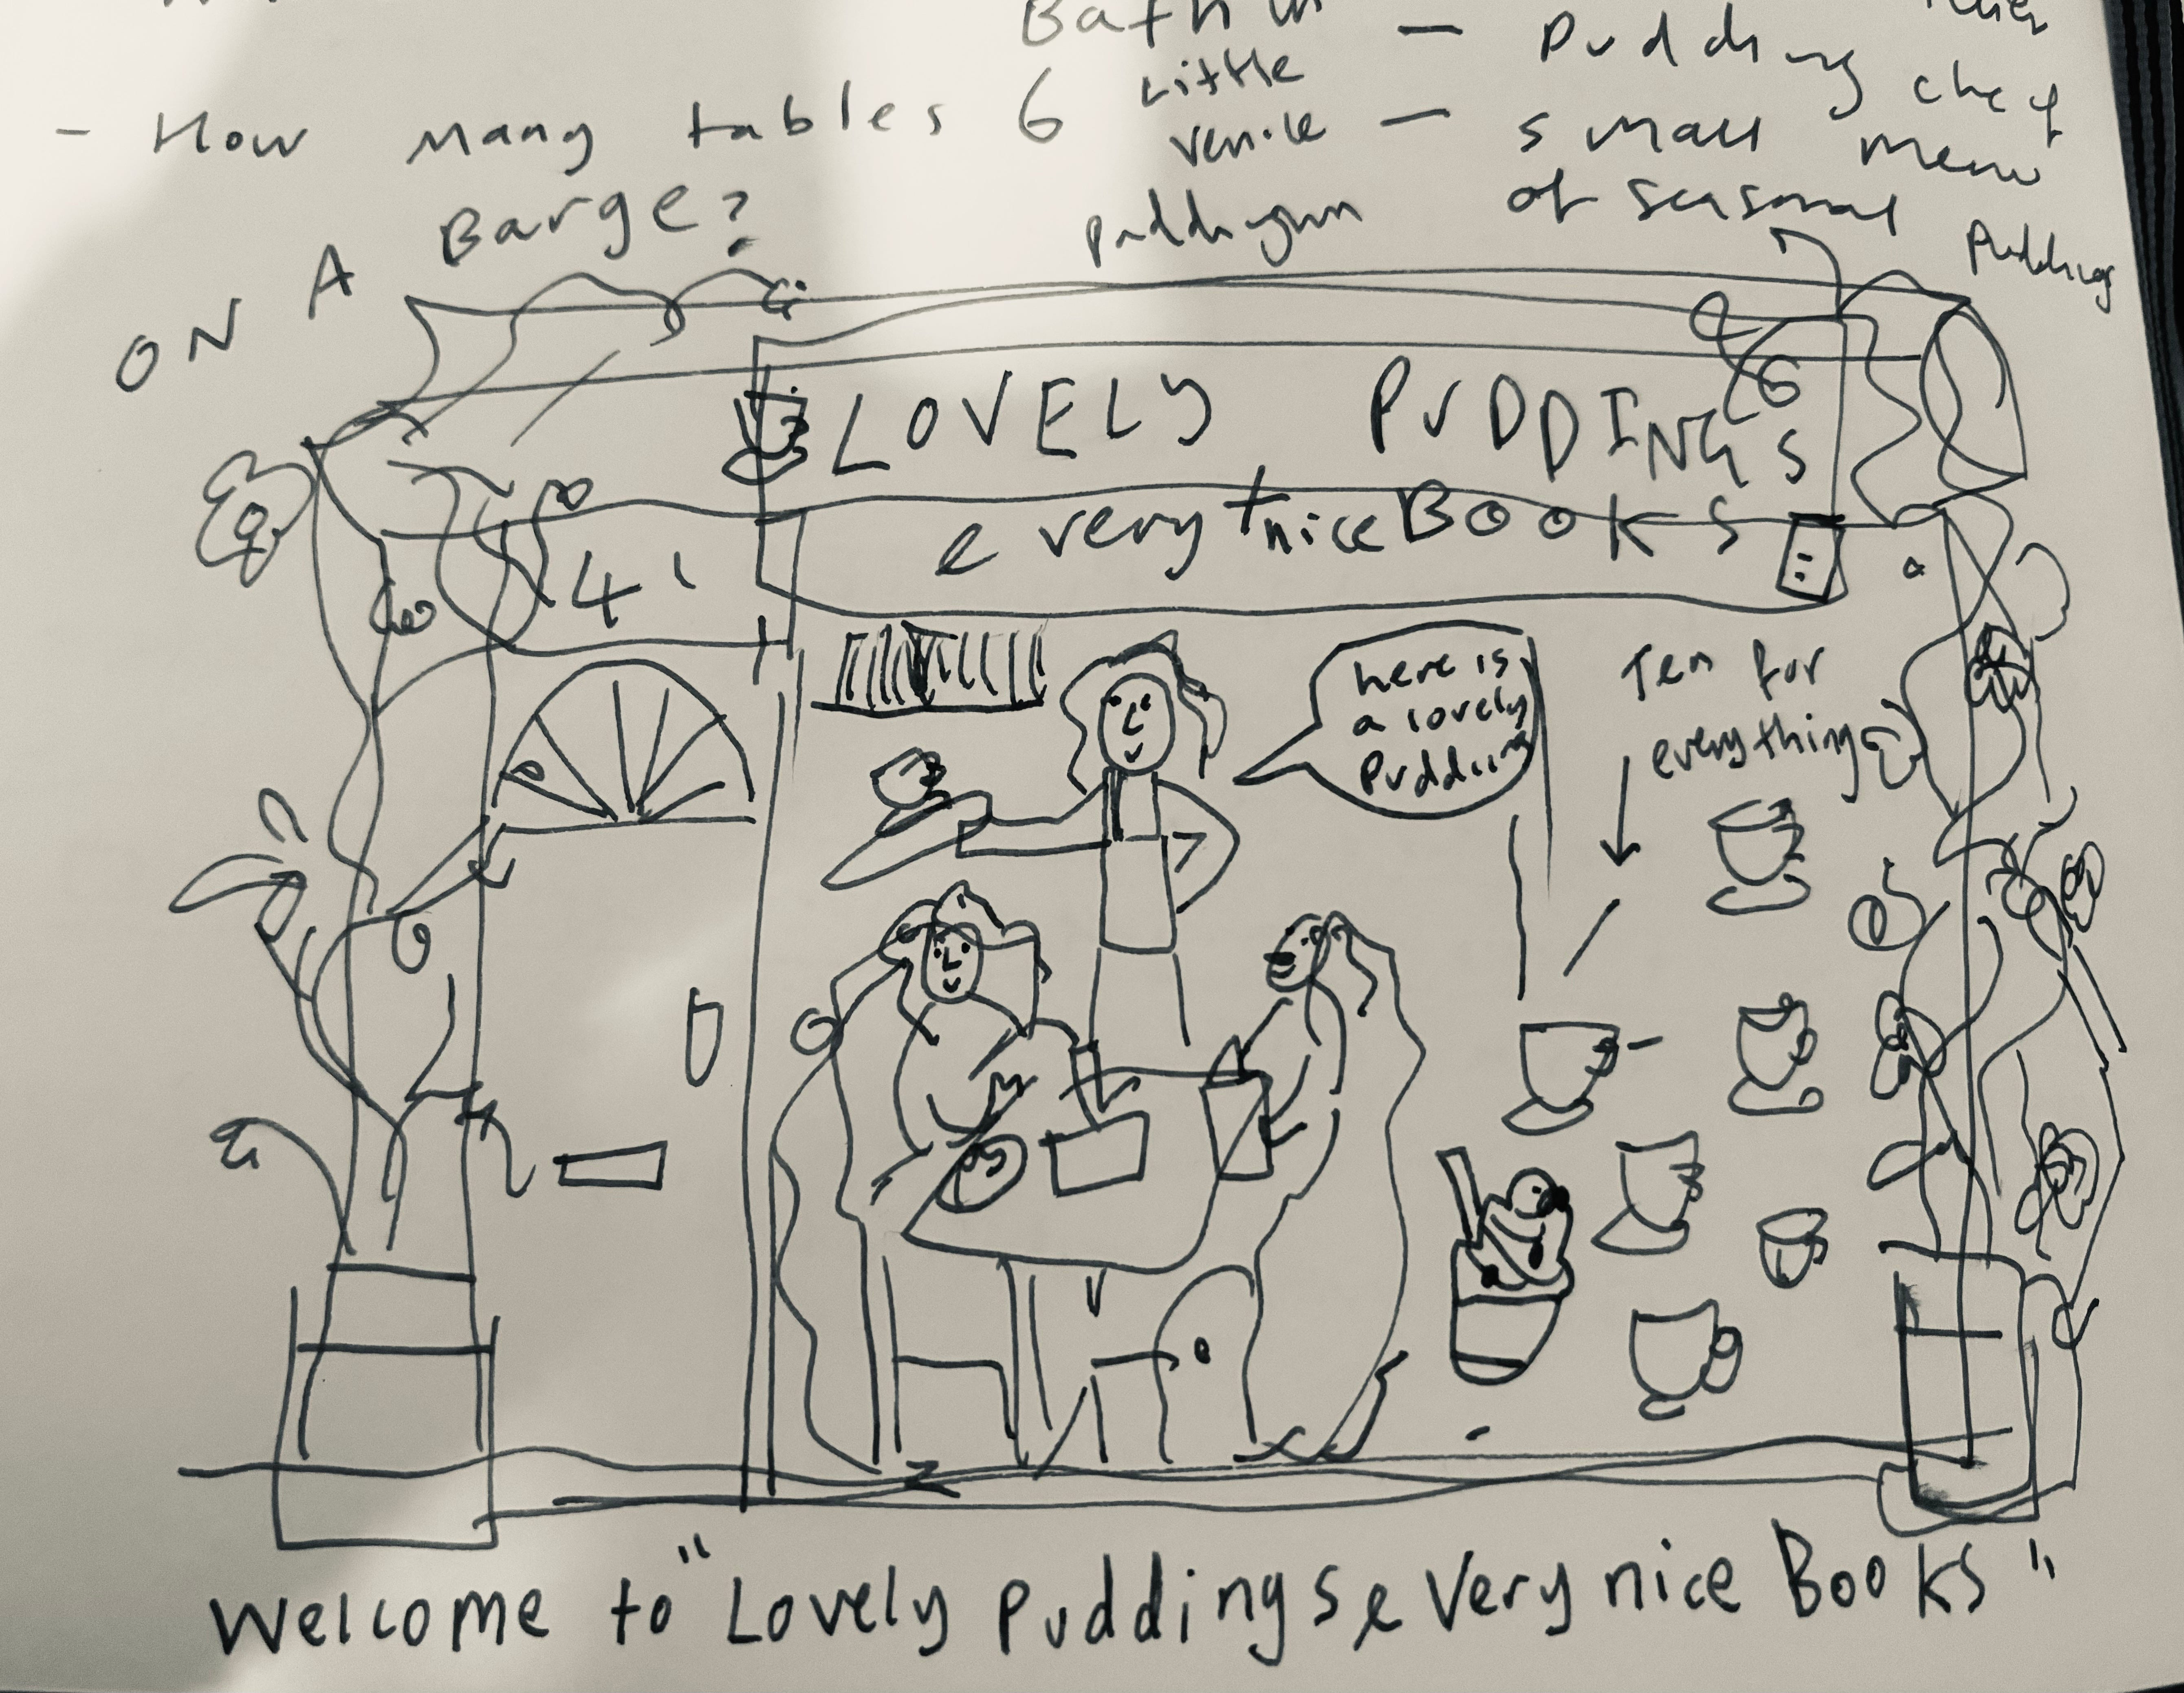 Bath in
- Pudding chef
- How many tables 6
Little
Venice
- small menu
of seasonal
Puddings
ON A Barge?
LOVELY PUDDINGS
& very nice BOOKS
41
here is
a lovely
Pudding
Tea for
everything
Welcome to "Lovely Puddings & Very nice Books"